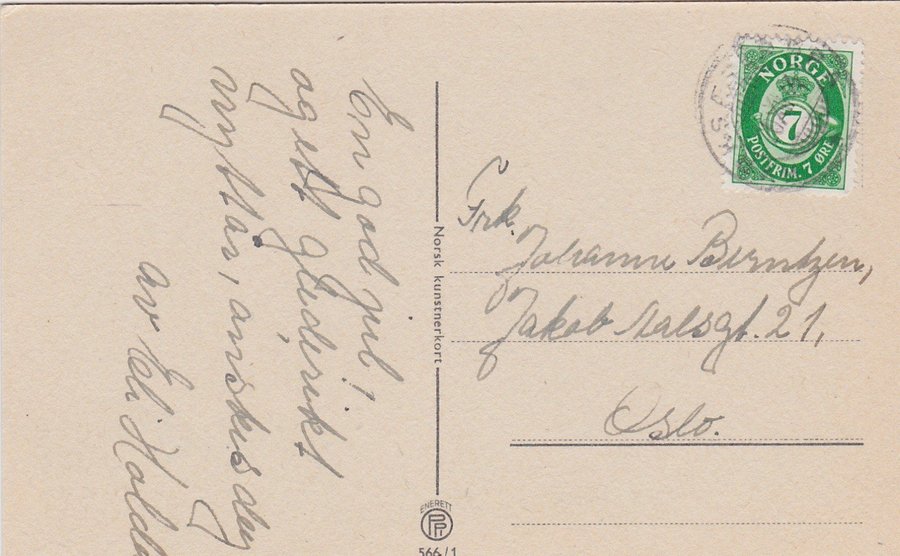 En god jul!
og ett glederikt
nyttår, ønskes deg
av Eli
Norsk kunstnerkort
ENERETT
566/1
NORGE
7
POSTFRIM. 7 ØRE
Frk.
Johanne Berntzen,
Jakob Aalsgt. 21,
Oslo.